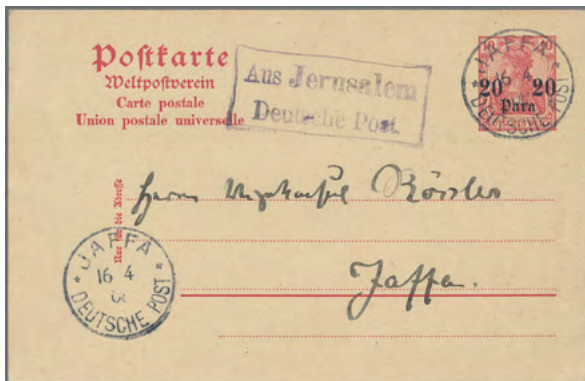 Postkarte
Weltpostverein
Carte postale
Union postale universelle
Aus Jerusalem
Deutsche Post.
10 10
20 20
Para
* JAFFA *
16 4
DEUTSCHE POST
Nur für die Adresse
Herrn Vizekonsul Rössler
Jaffa.
* JAFFA *
16 4
DEUTSCHE POST